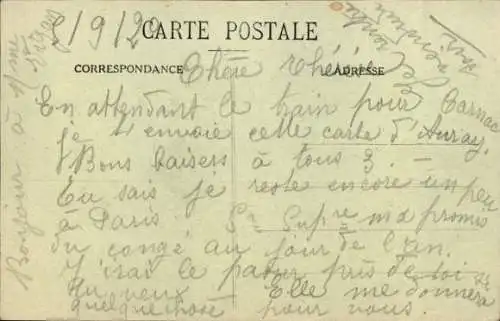 8/9/29
CARTE POSTALE
CORRESPONDANCE
ADRESSE
Chère Thérèse
En attendant le train pour Carnac
je t'envoie cette carte d'Auray.
Bons baisers à tous 3. —
Tu sais je reste encore un peu
à Paris. Supre m'a promis
du congé au jour de l'an.
J'irai le passer près de toi
tu veux Elle me donnera
quelque chose pour vous.
Bonjour à Mme